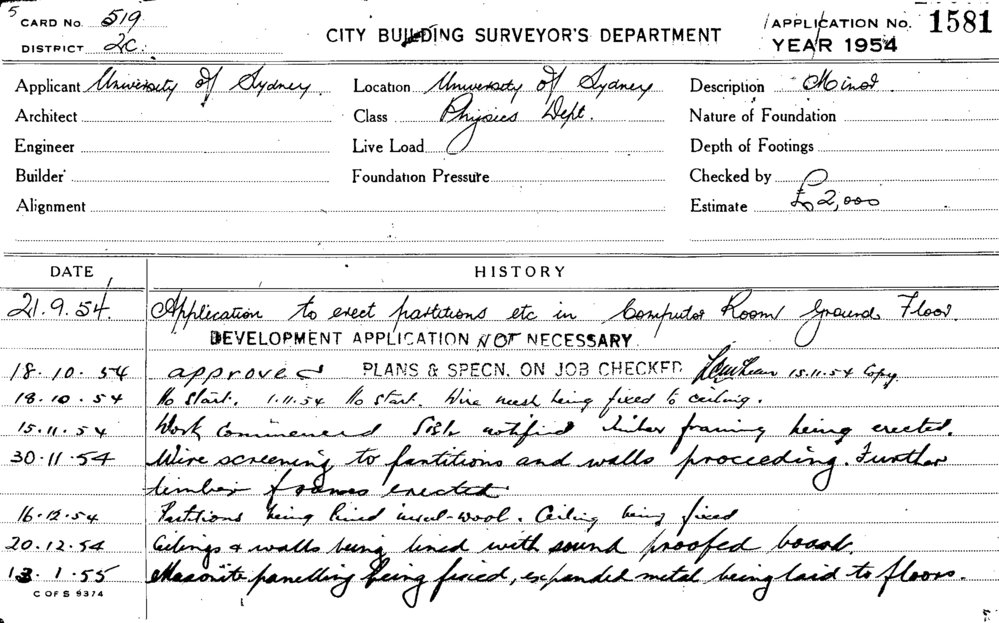 5 CARD No. 519
DISTRICT 2C.
CITY BUILDING SURVEYOR'S DEPARTMENT
APPLICATION No. 1581
YEAR 1954
Applicant University of Sydney Location University of Sydney Description Minor
Architect Class Physics Dept. Nature of Foundation
Engineer Live Load Depth of Footings
Builder Foundation Pressure Checked by
Alignment Estimate £2,000
DATE HISTORY
21.9.54. Application to erect partitions etc in Computor Room Ground Floor.
DEVELOPMENT APPLICATION NOT NECESSARY
18.10.54 approved PLANS & SPECN. ON JOB CHECKED 15.11.54 Copy.
18.10.54 No start. 1.11.54 No start. Wire mesh being fixed to ceiling.
15.11.54 Work Commenced notified timber framing being erected.
30.11.54 Wire screening to partitions and walls proceeding. Further
timber frames erected
16.12.54 Partitions being lined insul-wool. Ceiling being fixed
20.12.54 Ceilings & walls being lined with sound proofed board.
13.1.55 Masonite panelling being fixed, expanded metal being laid to floors.
C OF S 9374